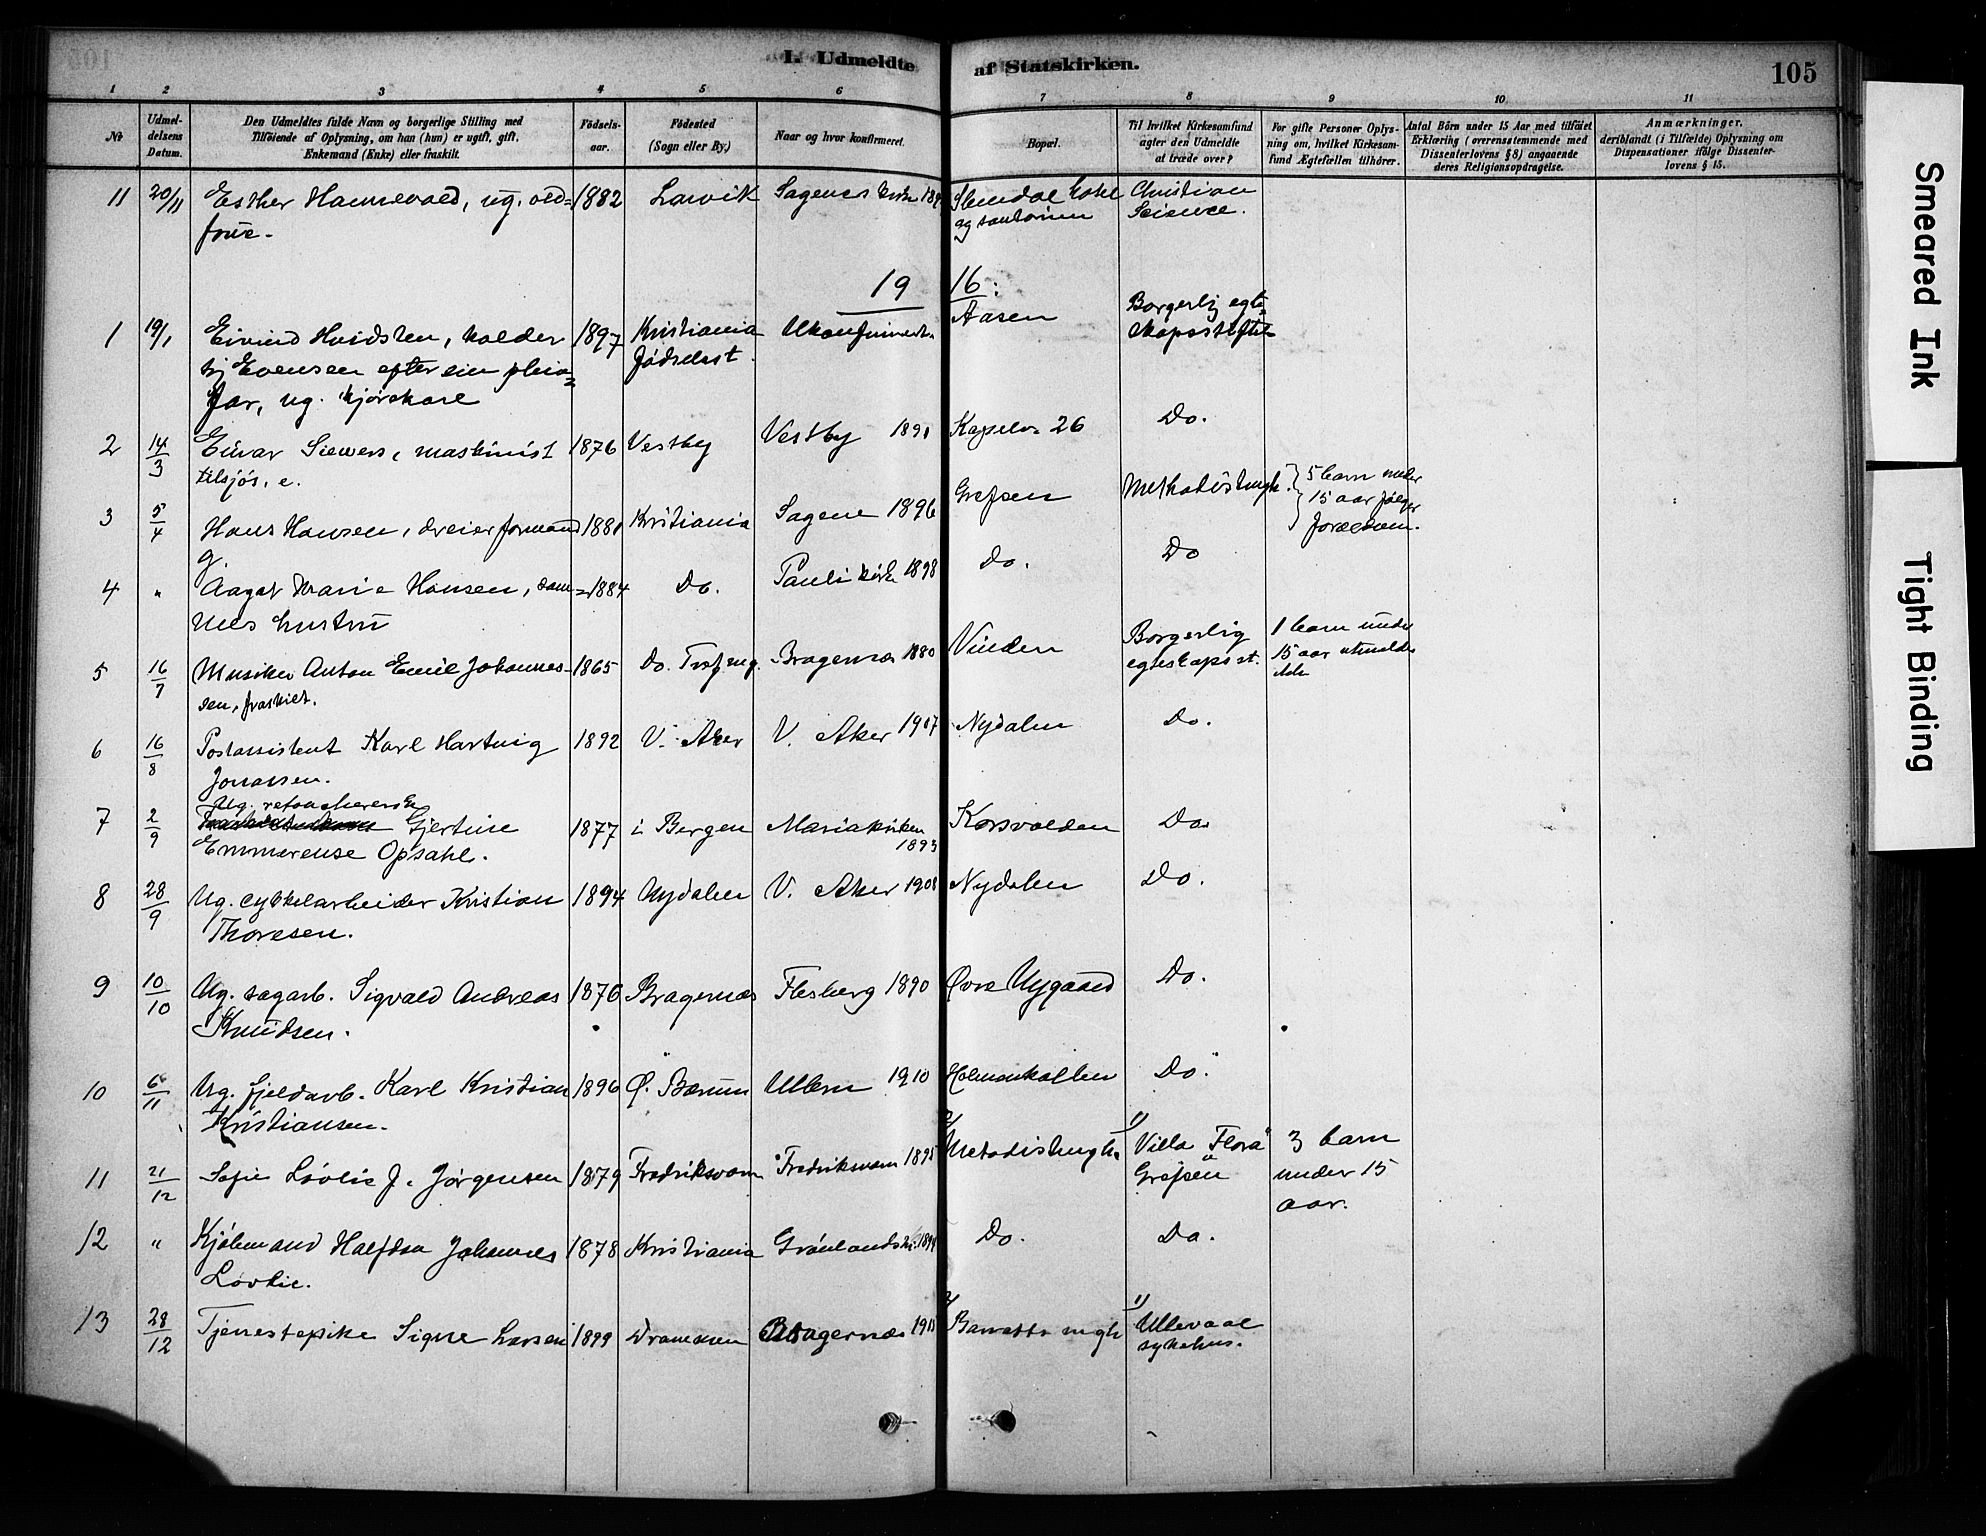 I. Udmeldte af Statskirken.
105
1 2 3 4 5 6 7 8 9 10 11
№
Udmel-
delsens
Datum.
Den Udmeldtes fulde Navn og borgerlige Stilling med
Tilføiende af Oplysning, om han (hun) er ugift, gift,
Enkemand (Enke) eller fraskilt.
Fødsels-
aar.
Fødested
(Sogn eller By.)
Naar og hvor konfirmeret.
Bopæl.
Til hvilket Kirkesamfund
agter den Udmeldte
at træde over?
For gifte Personer Oplys-
ning om, hvilket Kirkesam-
fund Ægtefællen tilhører.
Antal Børn under 15 Aar med tilføiet
Erklæring (overensstemmende med
Dissenterlovens § 8) angaaende
deres Religionsopdragelse.
Anmærkninger,
deriblandt (i Tilfælde) Oplysning om
Dispensationer ifølge Dissenter-
lovens § 15.
11 20/11 Esther Hannevold, ug. 1882 Larvik Sagenes kirke Hotel Christian
og Science.
19 16:
1 19/1 Eivind Hvidsten, kalder 1897 Kristiania Ukonfirmert. Aasen Borgerlig egte-
sig Evensen efter sin pleie- fødselsst. skapsstiftel
far, ug. kjørekarl
2 14/3 Einar Siewers, maskinist 1876 Vestby Vestby 1891 Kapelv. 26 Do.
tilsjøs, e.
3 5/4 Hans Hansen, dreierformand 1881 Kristiania Sagene 1896 Grefsen Methodistmgh. 5 barn under
g. 15 aar følger
forældrene.
4 " Aagot Marie Hansen, sam- 1884 Do. Pauli kirk 1898 Do. Do
mes hustru
5 16/7 Musiker Anton Emil Johannes- 1865 Do. Trefmg. Bragernæs 1880 Vinden Borgerlig 1 barn under
sen, fraskilt. egteskapsst. 15 aar utmeldes
ikke
6 16/8 Postassistent Karl Hartvig 1892 V. Aker V. Aker 1907 Nydalen Do.
Jonassen.
7 2/9 Ug. retoucherersk
Gjertine 1877 i Bergen Mariakirken Korsvolden Do.
Emmerense Opsahl. 1893
8 28/9 Ug. cykkelarbeider Kristian 1894 Nydalen V. Aker 1908 Nydalen Do.
Thoresen.
9 10/10 Ug. sagarb. Sigvald Andreas 1876 Bragernæs Flesberg 1890 Øvre Nygaard Do.
Knudsen.
10 6/11 Ug. fjeldarb. Karl Kristian 1896 Ø. Bærum Ullern 1910 Holmenkollen Do.
Kristiansen.
11 21/12 Sofie Løvlie f. Jørgensen 1879 Fredriksværn Fredriksværn 1895 2/ Metodistmgh. 1/ Villa "Flora" 3 barn
Grefsen under 15
aar.
12 " Kjøbmand Halfdan Johannes 1878 Kristiania Grønlands k. 1894 Do. Do.
Løvlie.
13 28/12 Tjenestepike Signe Larsen 1899 Drammen Bragernæs 1915 2/ Barratts mgh 1/ Ullevaal
sykehus.
Smeared Ink
Tight Binding